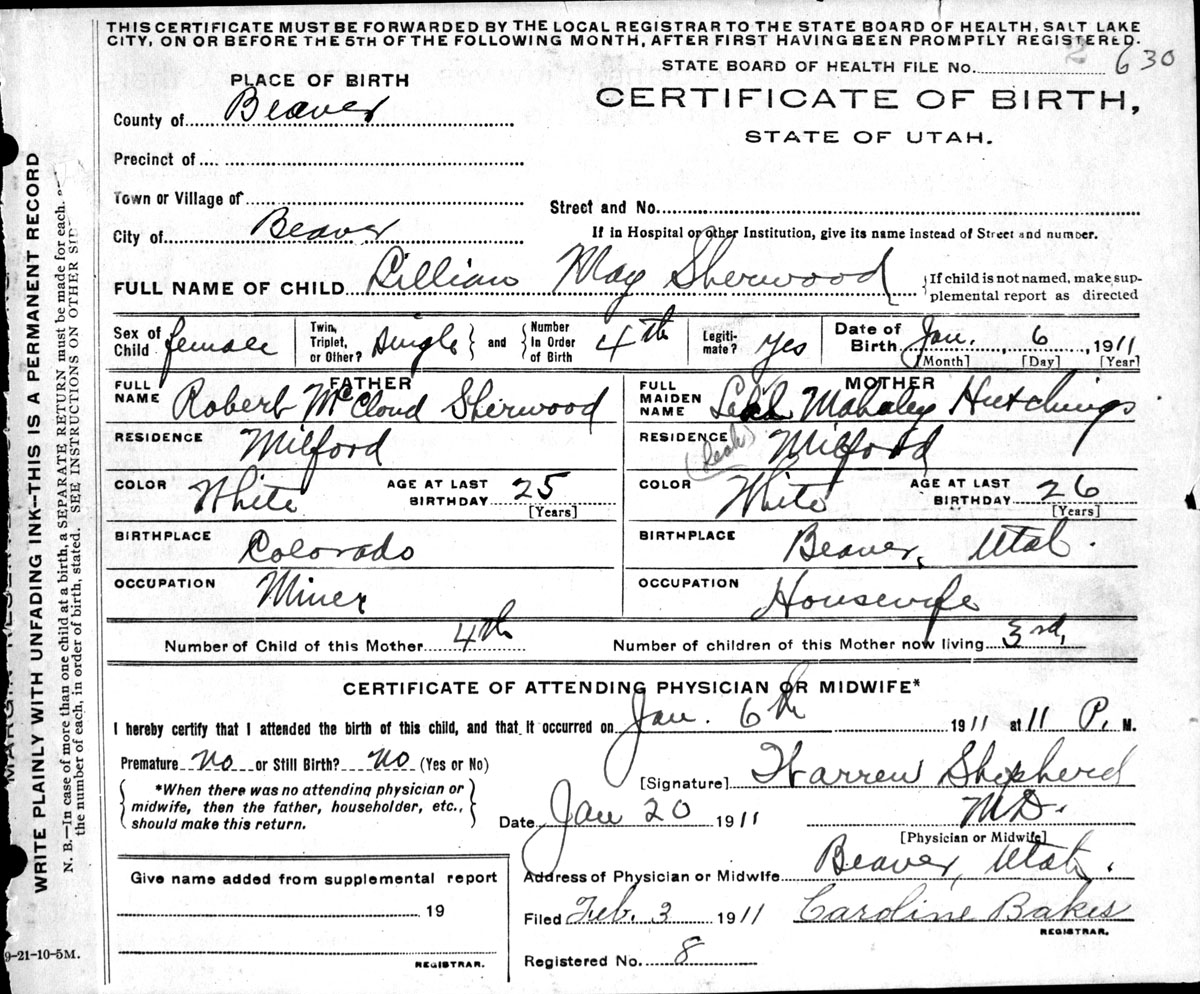 THIS CERTIFICATE MUST BE FORWARDED BY THE LOCAL REGISTRAR TO THE STATE BOARD OF HEALTH, SALT LAKE
CITY, ON OR BEFORE THE 5TH OF THE FOLLOWING MONTH, AFTER FIRST HAVING BEEN PROMPTLY REGISTERED.
STATE BOARD OF HEALTH FILE No. 2 630
PLACE OF BIRTH
CERTIFICATE OF BIRTH,
STATE OF UTAH.
County of Beaver
Precinct of
Town or Village of
Street and No.
City of Beaver
If in Hospital or other Institution, give its name instead of Street and number.
FULL NAME OF CHILD Lillian May Sherwood
{If child is not named, make sup-
plemental report as directed
Sex of Child female
Twin, Triplet, or Other? single } and { Number In Order of Birth 4th
Legiti-mate? yes
Date of Birth Jan. 6, 1911
[Month] [Day] [Year]
FATHER
FULL NAME Robert McCloud Sherwood
RESIDENCE Milford
COLOR White AGE AT LAST BIRTHDAY 25
[Years]
BIRTHPLACE Colorado
OCCUPATION Miner
MOTHER
FULL MAIDEN NAME Mahaley Hutchings
(Leah)
RESIDENCE Milford
COLOR White AGE AT LAST BIRTHDAY 26
[Years]
BIRTHPLACE Beaver, Utah.
OCCUPATION Housewife
Number of Child of this Mother 4th Number of children of this Mother now living 3rd,
CERTIFICATE OF ATTENDING PHYSICIAN OR MIDWIFE*
I hereby certify that I attended the birth of this child, and that it occurred on Jan. 6th 1911 at 11 P. M.
Premature No or Still Birth? No (Yes or No)
*When there was no attending physician or
midwife, then the father, householder, etc.,
should make this return.
[Signature] Warren Shepherd
M.D.
[Physician or Midwife]
Date Jan 20 1911
Address of Physician or Midwife Beaver, Utah.
Filed Feb. 3 1911 Caroline Bakes
REGISTRAR.
Registered No. 8
Give name added from supplemental report
19
REGISTRAR.
WRITE PLAINLY WITH UNFADING INK—THIS IS A PERMANENT RECORD
N. B.—In case of more than one child at a birth, a SEPARATE RETURN must be made for each,
the number of each, in order of birth, stated. SEE INSTRUCTIONS ON OTHER
9-21-10-5M.